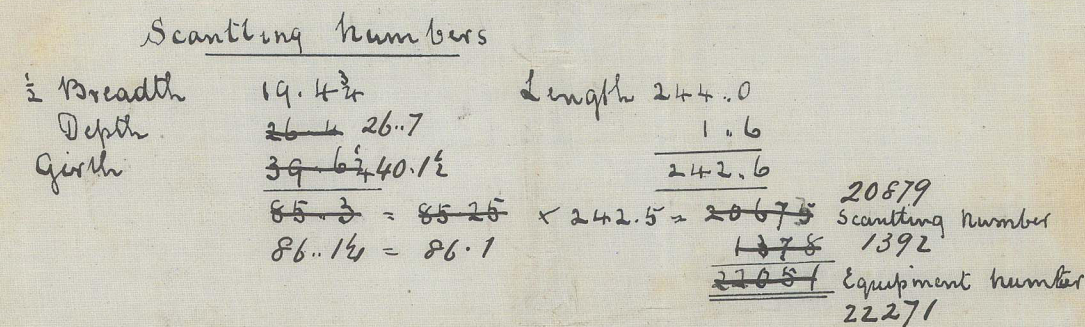 Scantling Numbers
½ Breadth 19.4¾ Length 244.0
Depth 26.4 26..7 1.6
Girth 39.6½ 40.1½ 242.6
20879
85..3 = 85.25 × 242.5 = 20675 Scantling Number
86..1¼ = 86.1 1378 1392
22051 Equipment Number
22271